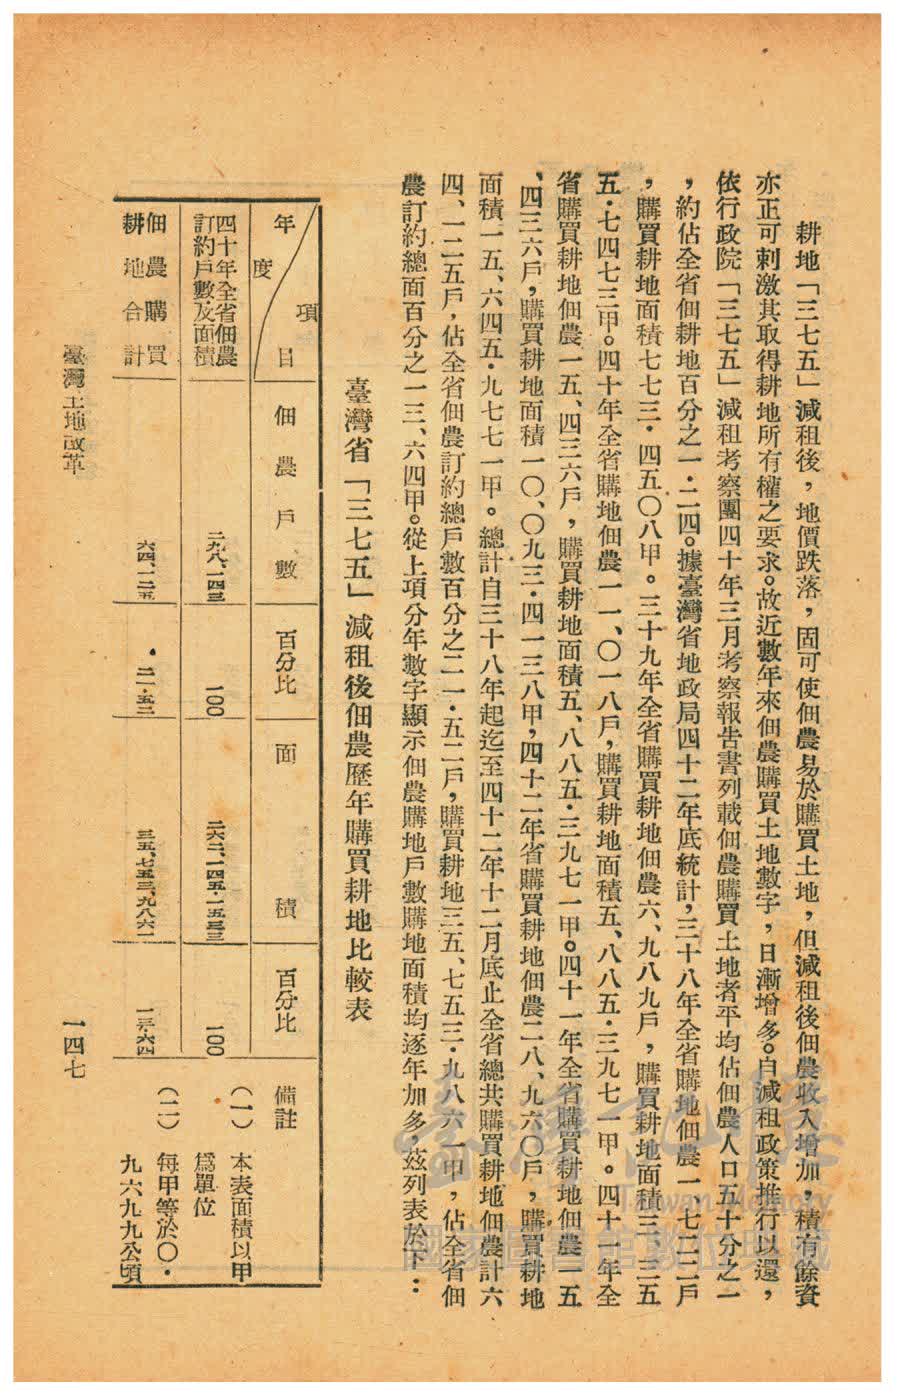 耕地「三七五」減租後，地價跌落，固可使佃農易於購買土地，但減租後佃農收入增加，積有餘資
亦正可刺激其取得耕地所有權之要求。故近數年來佃農購買土地數字，日漸增多。自減租政策推行以還，
依行政院「三七五」減租考察團四十年三月考察報告書列載佃農購買土地者平均佔佃農人口五十分之一
，約佔全省佃耕地百分之一．二四。據臺灣省地政局四十二年底統計，三十八年全省購地佃農一、七二二戶
，購買耕地面積七七三．四五〇八甲。三十九年全省購買耕地佃農六、九八九戶，購買耕地面積三、三五
五．七四七三甲。四十年全省購地佃農一一、〇一八戶，購買耕地面積五、八八五．三九七一甲。四十一年全
省購買耕地佃農一五、四三六戶，購買耕地面積五、八八五．三九七一甲。四十一年全省購買耕地佃農一五
、四三六戶，購買耕地面積一〇、〇九三．四一三八甲，四十二年省購買耕地佃農二八、九六〇戶，購買耕地
面積一五、六四五．九七七一甲。總計自三十八年起迄至四十二年十二月底止全省總共購買耕地佃農計六
四、一二五戶，佔全省佃農訂約總戶數百分之二一．五二戶，購買耕地三五、七五三．九八六一甲，佔全省佃
農訂約總面百分之一三、六四甲。從上項分年數字顯示佃農購地戶數購地面積均逐年加多，茲列表於下：
臺灣省「三七五」減租後佃農歷年購買耕地比較表
年度 項目 佃農戶數 百分比 面積 百分比 備註
四十年全省佃農訂約戶數及面積 二九八、一四三 一〇〇 二六二、一四五．一五三三 一〇〇 （一）本表面積以甲爲單位
佃農購買耕地合計 六四、一二五 二一．五二 三五、七五三、九八六一 一三．六四 （二）每甲等於〇．九六九九公頃
臺灣土地改革
一四七
臺灣記憶
Taiwan Memory
國家圖書館數位典藏